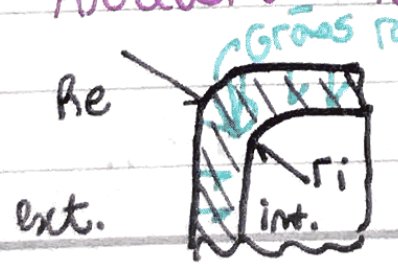 Grãos
Re
ri
ext.
int.